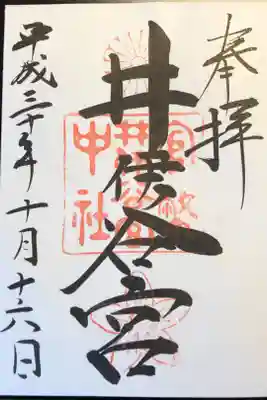 奉拝
井伊谷宮
平成三十年十月十六日